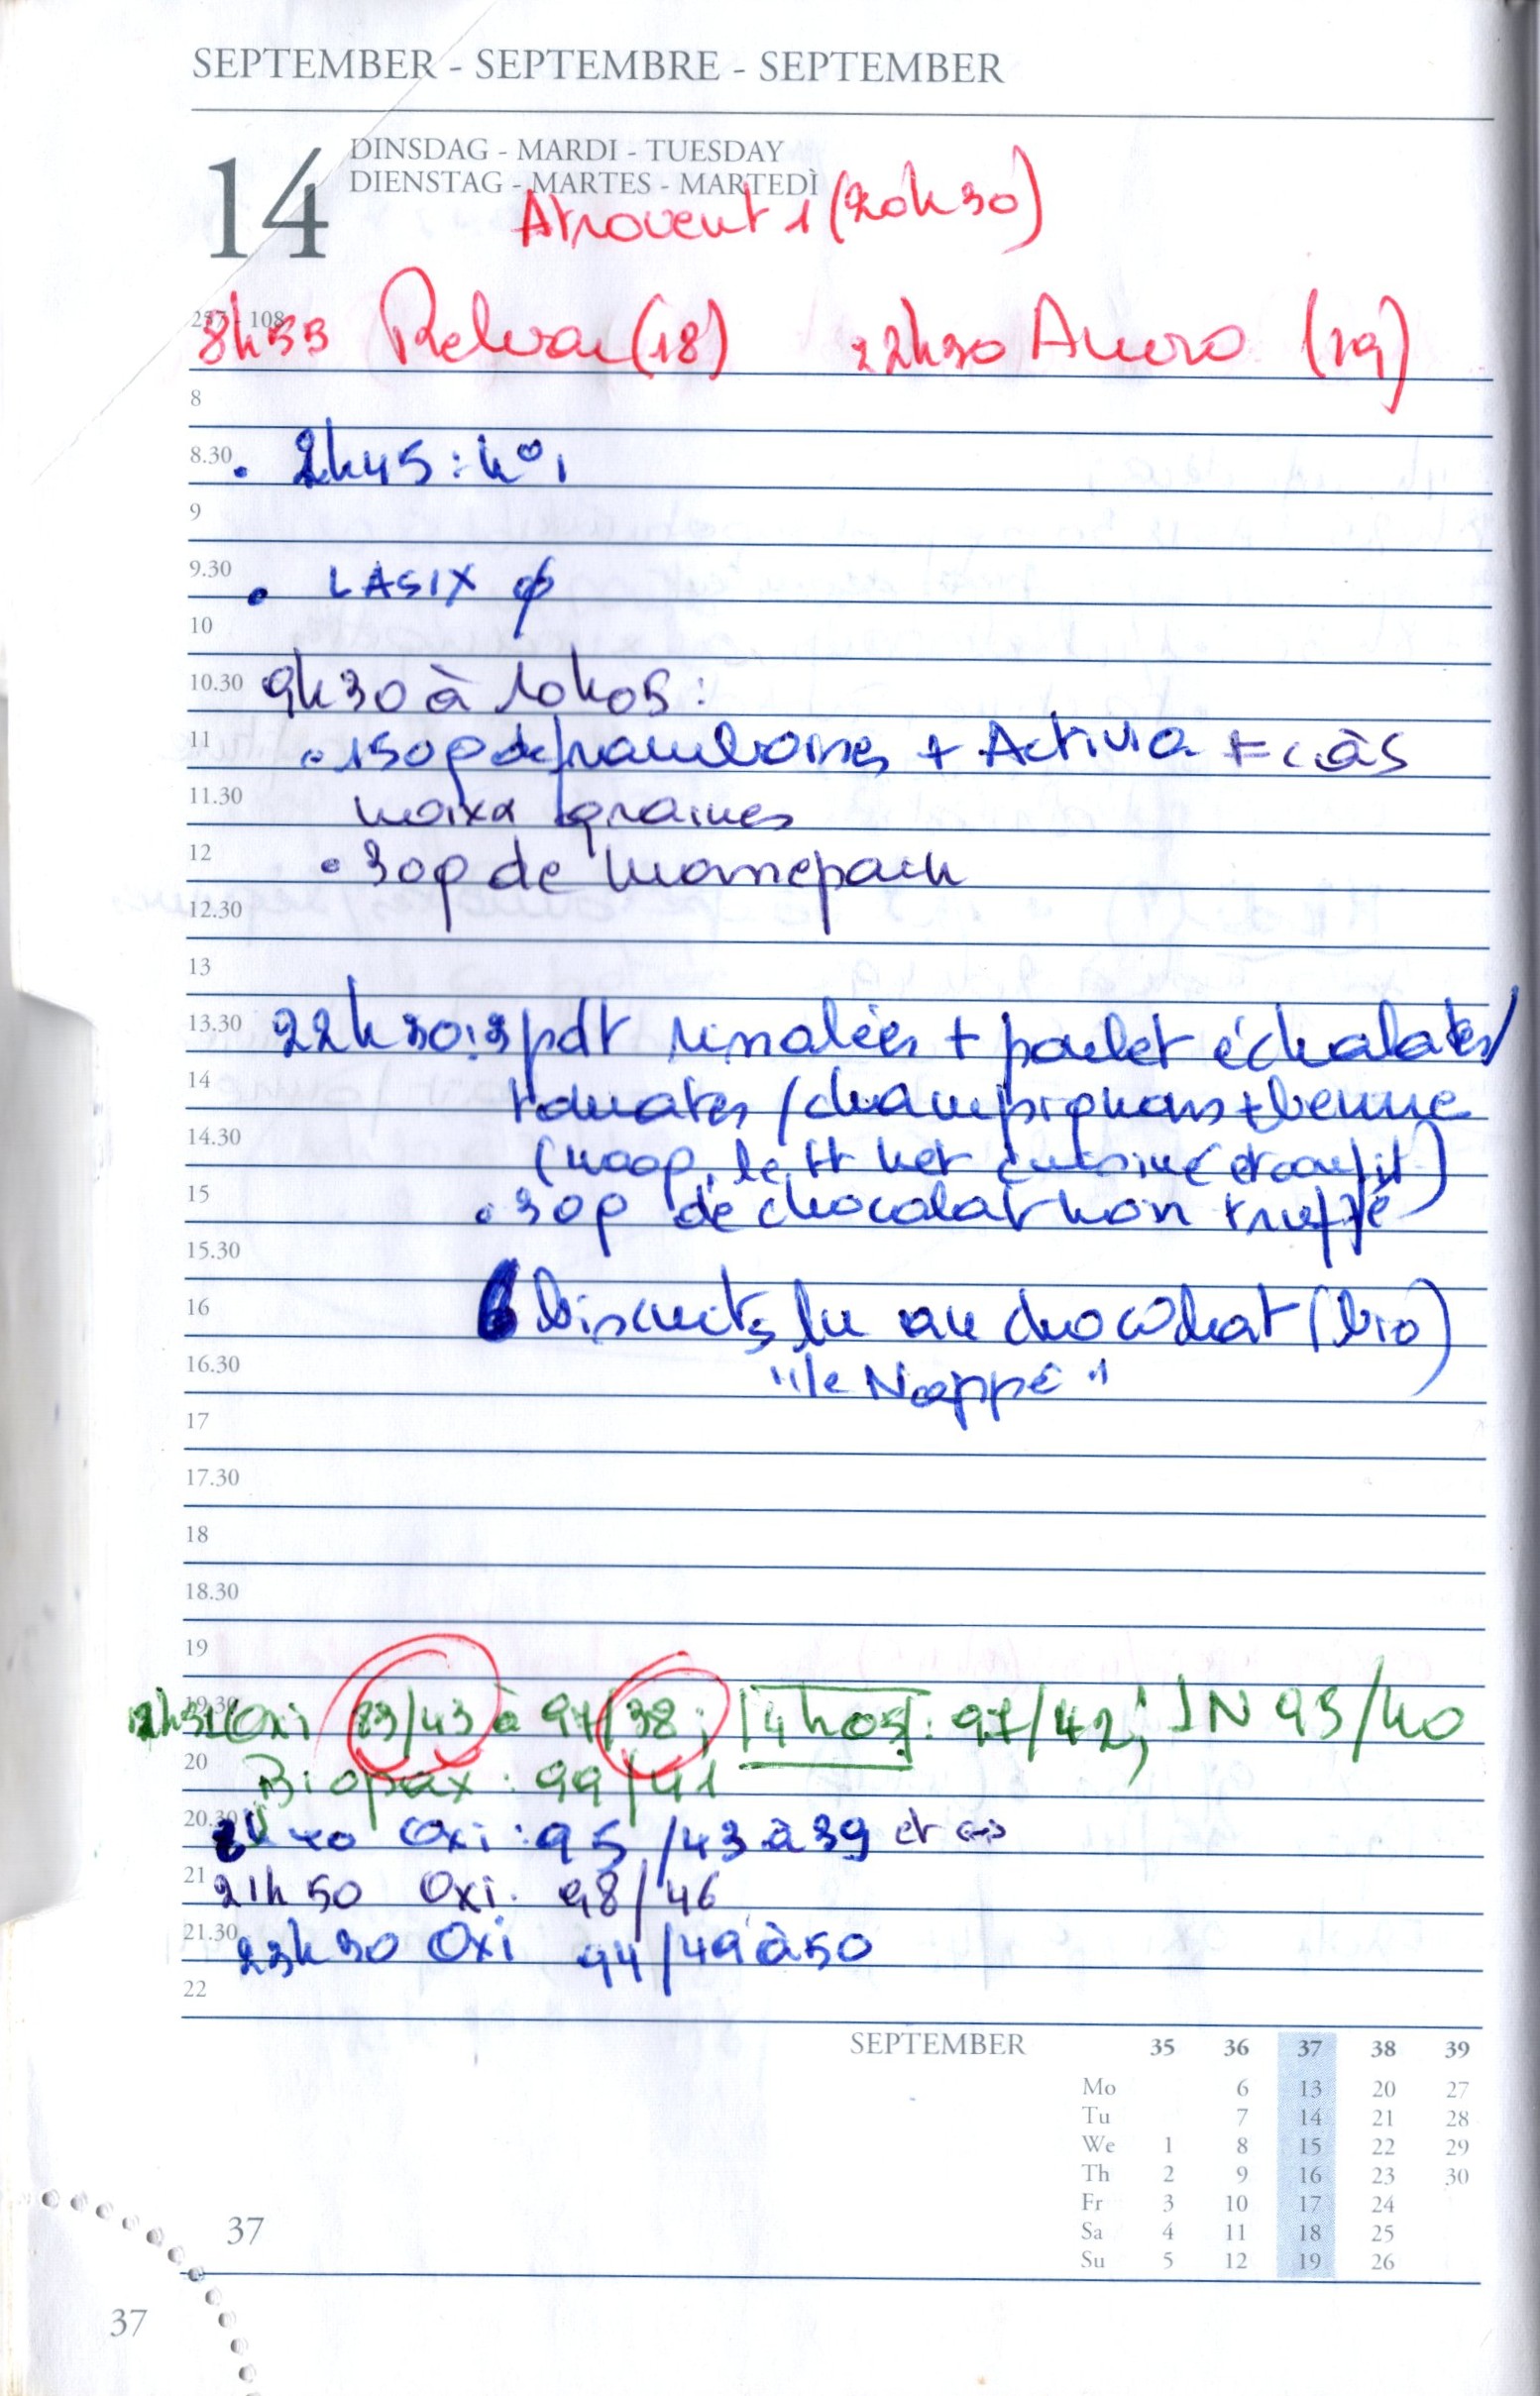 SEPTEMBER - SEPTEMBRE - SEPTEMBER
14
DINSDAG - MARDI - TUESDAY
DIENSTAG - MARTES - MARTEDÌ
Atrovent 1 (20h30)
257 - 108
8h55 Relvar (18) 22h30 Anoro (19)
8
8.30 • 2h45 : n° 1
9
9.30 • LASIX ϕ
10
10.30 9h30 à 10h05 :
11 • 150g de framboises + Activia + càs
11.30 noix graines
12 • 30g de
12.30
13
13.30 22h30 : 3 pdt rissolées + poulet échalotes/
14 tomates / champignons + beurre
14.30
15 • 30g de chocolat noir truffé
15.30
16 6 biscuits lu au chocolat (bio)
16.30 "le Nappé"
17
17.30
18
18.30
19
19.30 Oxi 83/43 à 97/38 ; 14h05 : 97/42 ; IN 93/40
20 Biopax : 99/41
20.30 Oxi : 95/43 à 39 et <->
21 21h50 Oxi. 98/46
21.30 23h30 Oxi 94/49 à 50
22
SEPTEMBER 35 36 37 38 39
Mo 6 13 20 27
Tu 7 14 21 28
We 1 8 15 22 29
Th 2 9 16 23 30
Fr 3 10 17 24
Sa 4 11 18 25
Su 5 12 19 26
37
37